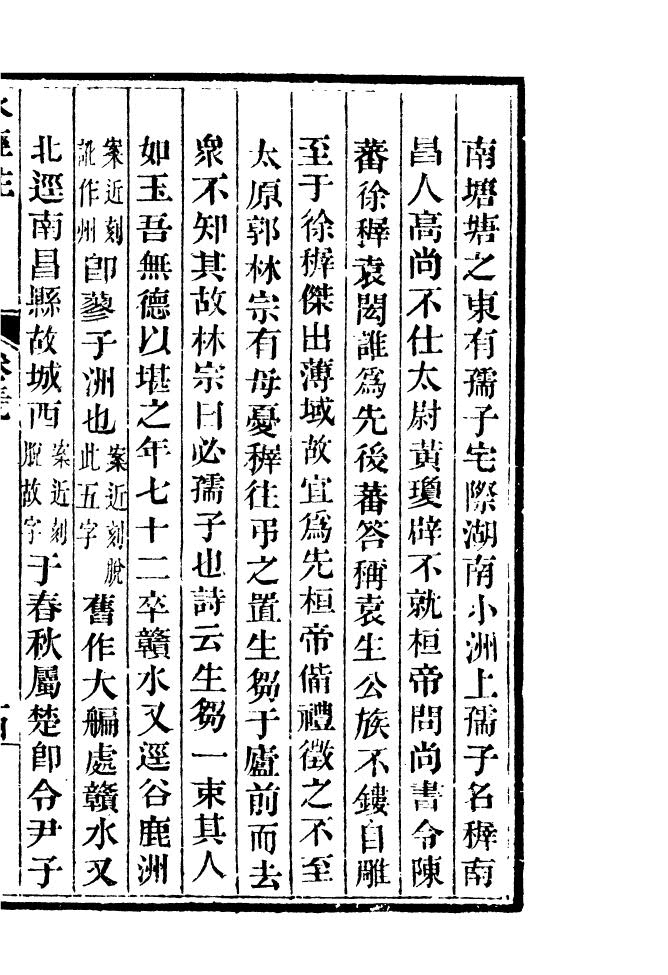 南塘塘之東有孺子宅際湖南小洲上孺子名穉南
昌人高尚不仕太尉黃瓊辟不就桓帝問尚書令陳
蕃徐穉袁閎誰為先後蕃答稱袁生公族不鏤自雕
至于徐穉傑出薄域故宜為先桓帝備禮徵之不至
太原郭林宗有母憂穉往弔之置生芻于廬前而去
衆不知其故林宗曰必孺子也詩云生芻一束其人
如玉吾無德以堪之年七十二卒贛水又逕谷鹿洲
案近刻訛作州即蓼子洲也案近刻脫此五字舊作大艑處贛水又
北逕南昌縣故城西案近刻脫故字于春秋屬楚即令尹子
水經注